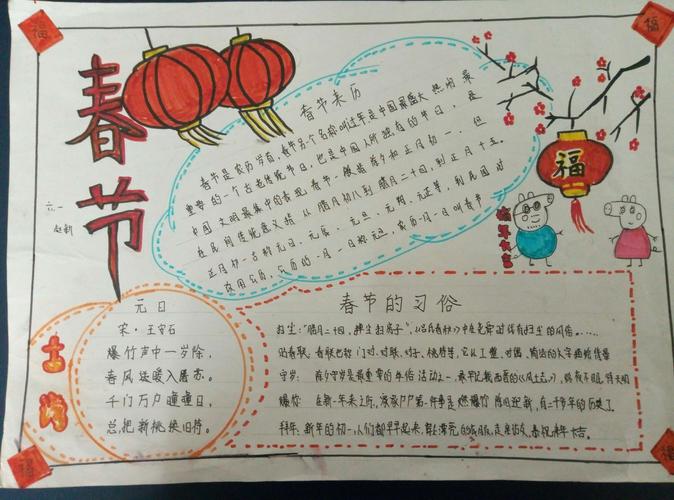 福
福
春节
六·一
赵新
春节来历
春节是农历岁首,春节另个名称叫过年是中国最盛大 热闹 最
重要的一个古老传统节日,也是中国人所独有的节日,是
中国文明最集中的表现.春节一般指除夕和正月初一.但
在民间传统意义指从腊月初八到腊月二十四,到正月十五。
正月初一古称元日、元辰、元旦、元朔、元正等,到民国时
改用公历,公历的一月一日称元旦,农历一月一日叫春节
福
猪年大吉
古诗
元日
宋·王安石
爆竹声中一岁除,
春风送暖入屠苏。
千门万户曈曈日,
总把新桃换旧符。
春节的习俗
扫尘:"腊月二十四,掸尘扫房子",《吕氏春秋》中在尧舜时代有扫尘的风俗。……
贴春联:春联也叫门对、对联、对子、桃符等,它以工整、对偶、简洁的文字
守岁:除夕守岁是最重要的年俗活动之一 最早记载西晋的《风土志》,终夜不眠,待天明
爆竹 在新年来之际,家家户户第一件事是燃爆竹 除旧迎新,有二千多年的历史了
拜年:新年的初一,人们都早早起来,穿上漂亮的衣服,走亲访友,恭祝来年大吉。
福
福